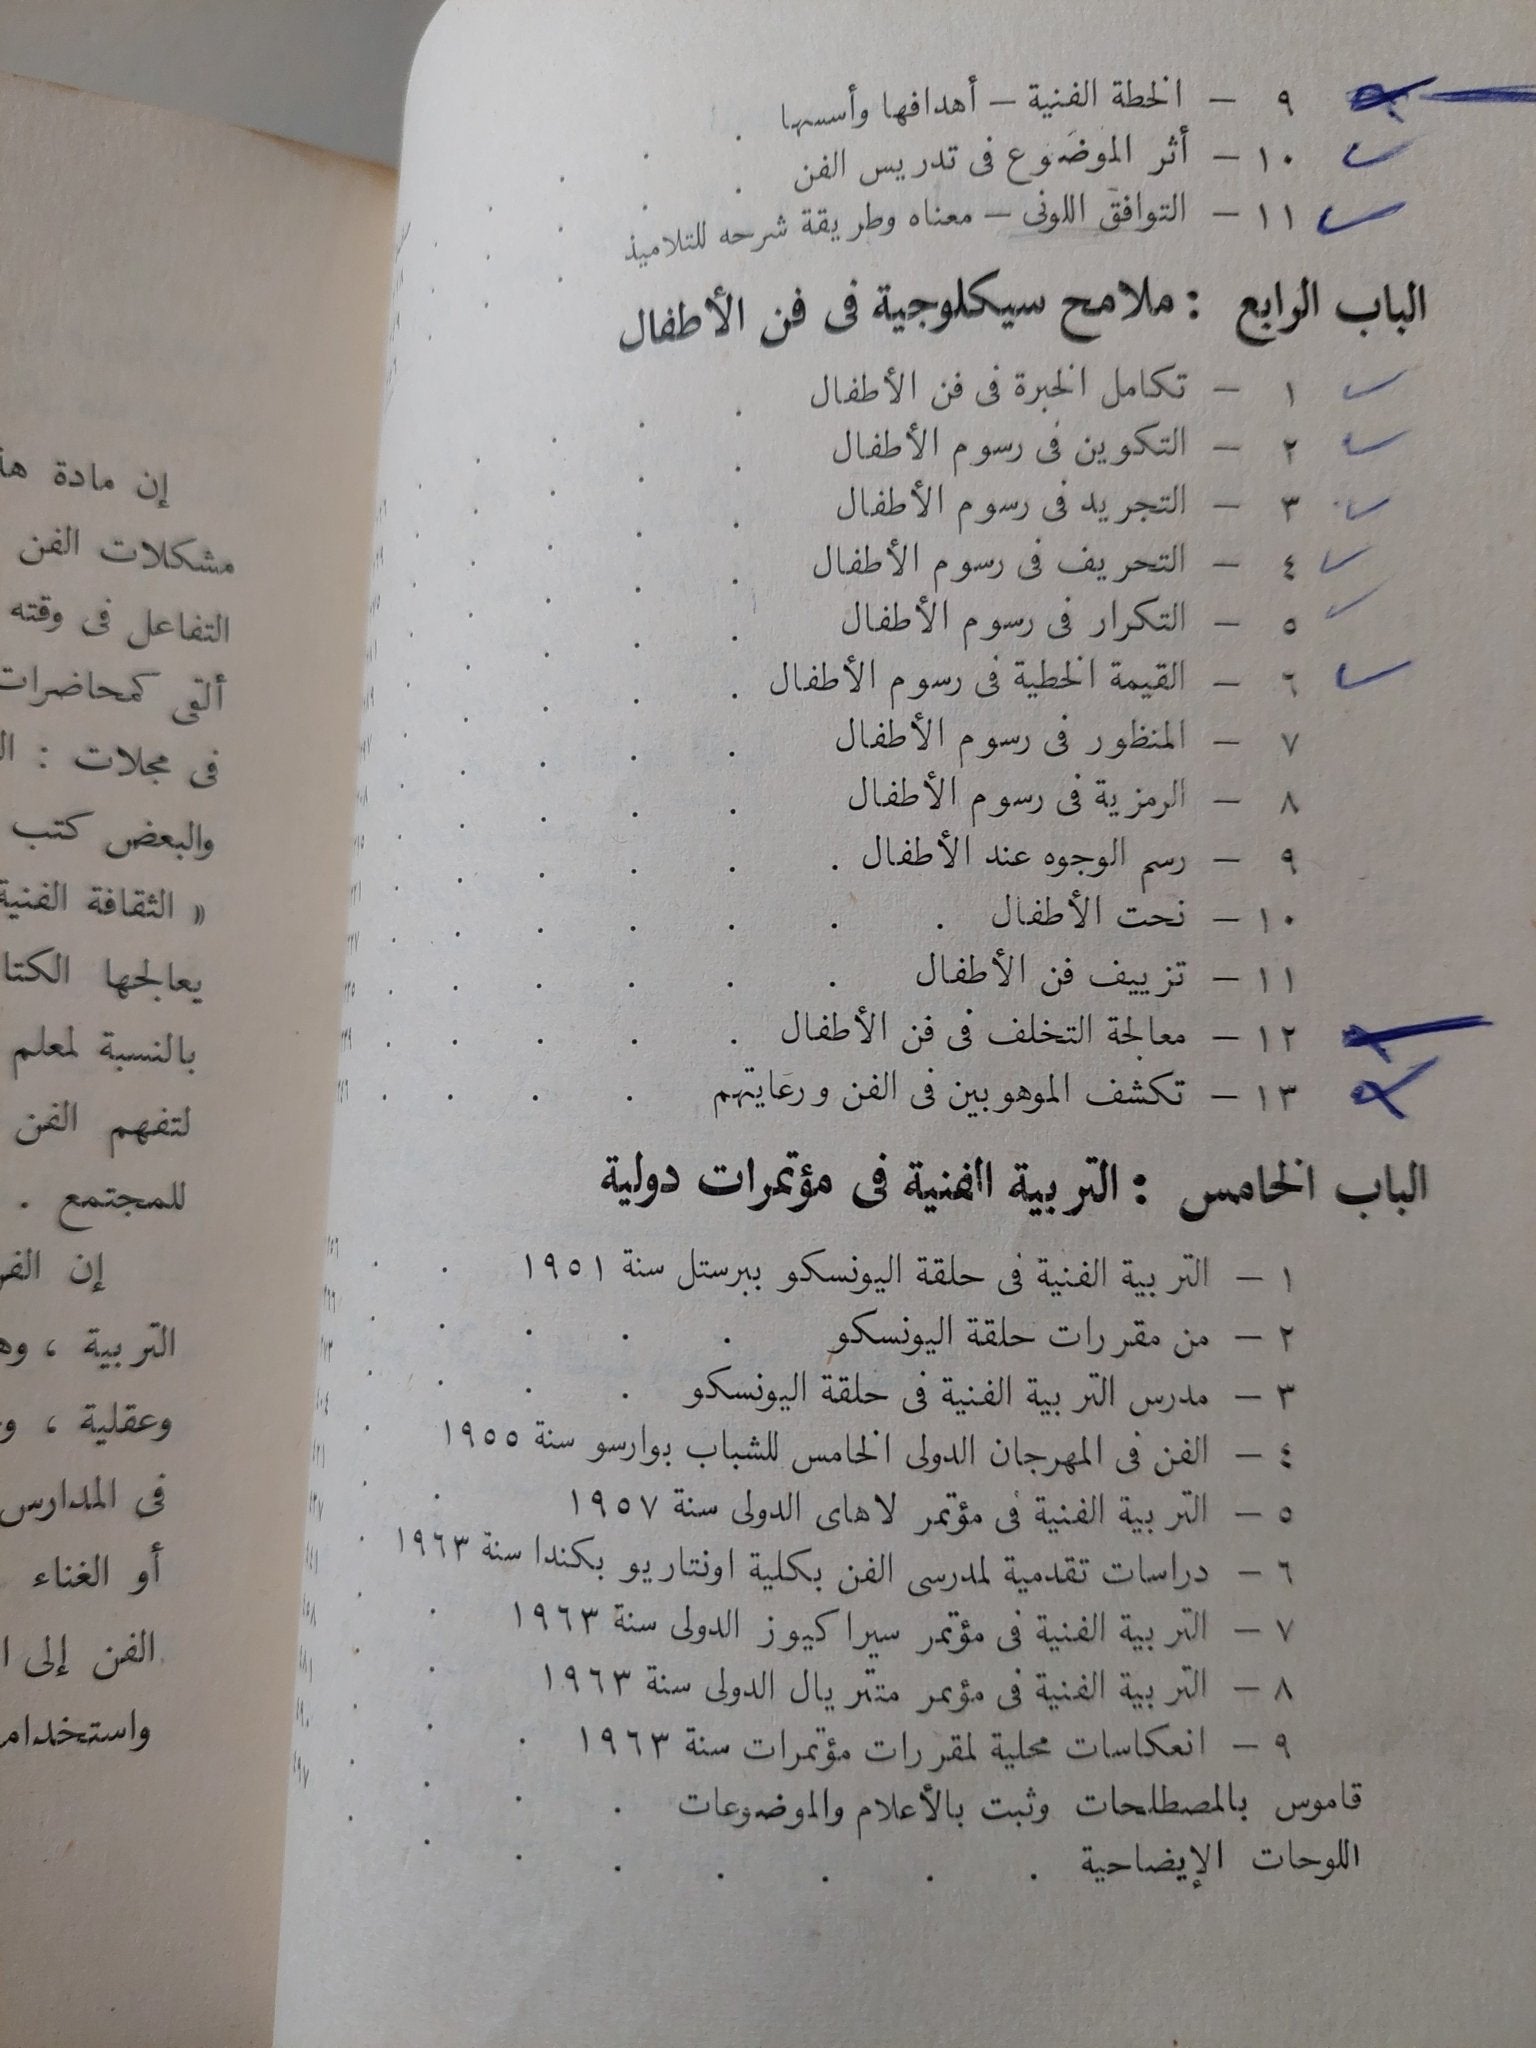 ٩ – الخطة الفنية – أهدافها وأسسها
١٠ – أثر الموضوع فى تدريس الفن
١١ – التوافق اللونى – معناه وطريقة شرحه للتلاميذ
الباب الرابع : ملامح سيكلوجية فى فن الأطفال
١ – تكامل الخبرة فى فن الأطفال
٢ – التكوين فى رسوم الأطفال
٣ – التجريد فى رسوم الأطفال
٤ – التحريف فى رسوم الأطفال
٥ – التكرار فى رسوم الأطفال
٦ – القيمة الخطية فى رسوم الأطفال
٧ – المنظور فى رسوم الأطفال
٨ – الرمزية فى رسوم الأطفال
٩ – رسم الوجوه عند الأطفال
١٠ – نحت الأطفال
١١ – تزييف فن الأطفال
١٢ – معالجة التخلف فى فن الأطفال
١٣ – تكشف الموهوبين فى الفن ورعايتهم
الباب الخامس : التربية الفنية فى مؤتمرات دولية
١ – التربية الفنية فى حلقة اليونسكو ببرستل سنة ١٩٥١
٢ – من مقررات حلقة اليونسكو
٣ – مدرس التربية الفنية فى حلقة اليونسكو
٤ – الفن فى المهرجان الدولى الخامس للشباب بوارسو سنة ١٩٥٥
٥ – التربية الفنية فى مؤتمر لاهاى الدولى سنة ١٩٥٧
٦ – دراسات تقدمية لمدرسى الفن بكلية اونتاريو بكندا سنة ١٩٦٣
٧ – التربية الفنية فى مؤتمر سيراكيوز الدولى سنة ١٩٦٣
٨ – التربية الفنية فى مؤتمر متتريال الدولى سنة ١٩٦٣
٩ – انعكاسات محلية لمقررات مؤتمرات سنة ١٩٦٣
قاموس بالمصطلحات وثبت بالأعلام والموضوعات
اللوحات الإيضاحية
إن مادة
مشكلات الفن
التفاعل فى وقته
ألقى كمحاضرات
فى مجلات :
والبعض كتب
« الثقافة الفنية
يعالجها
بالنسبة لمعلم
لتفهم الفن
للمجتمع .
إن
التربية ،
وعقلية ،
فى المدارس
أو الغناء
الفن إلى